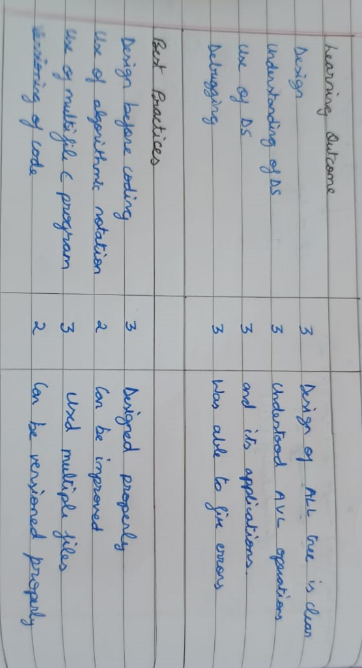 Learning Outcome
Design 3 Design of ALL tree is clear
Understanding of DS 3 Understood AVL operations
Use of DS 3 and its applications.
Debugging 3 Was able to fix errors
Best Practices
Design before coding 3 Designed properly
Use of algorithmic notation 2 Can be improved
Use of multifile C program 3 Used multiple files
of code 2 Can be versioned properly